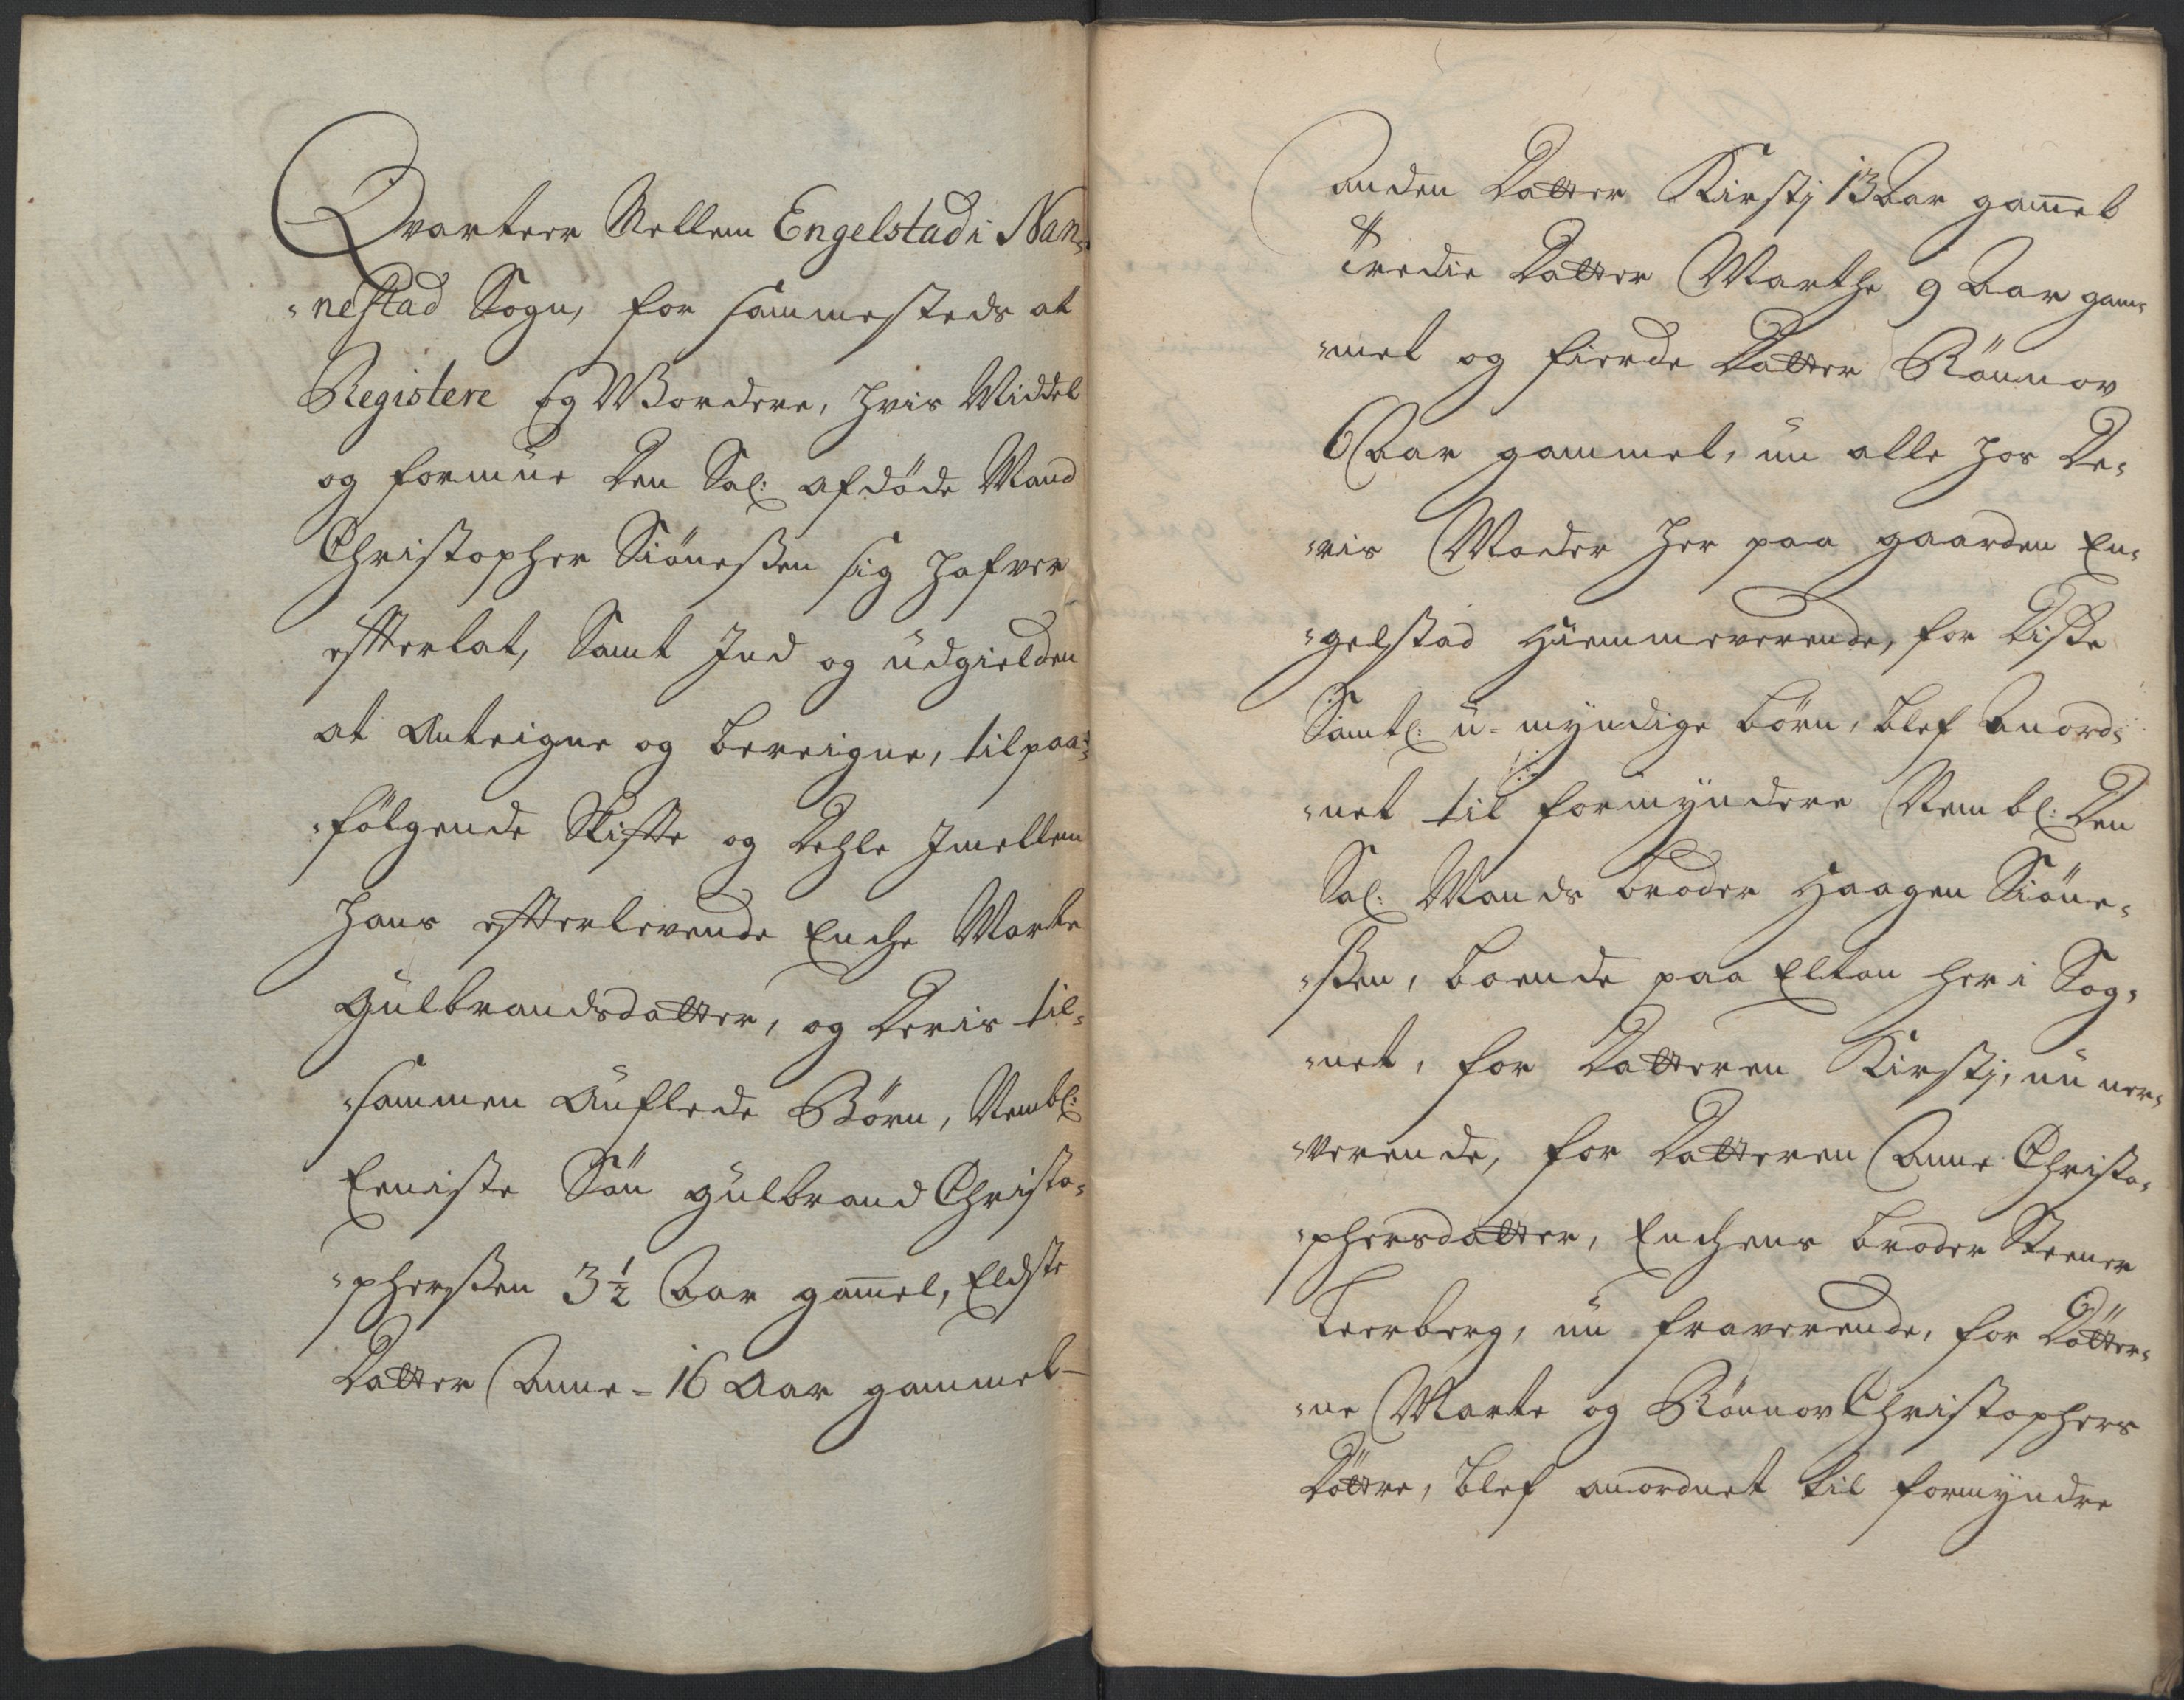 Qvarteer Mellem Engelstad i Nan-
-nestad Sogn, for sammesteds at
Registere og WBordere, hvis Middel
og formue den Sal: afdöde Mand
Christopher Siöneßen sig hafver
effterlat, Samt Ind og üdgielden
at Anteigne og bereigne, til paa-
-fölgende Skiffte og Dehle Imellem
hans effterlevende Enche Marte
Gulbrandsdatter, og Deris til-
-sammen Auflede Börn, Nembl:
Eeniste Sön Gulbrand Christo-
-pherßen 3½ Aar gam̄el, Eldste
Datter Anne - 16 Aar gammel-
Anden Datter Kirstj 13 Aar gam̄el
Tredie Datter Marthe 9 Aar gam-
-mel og fierde Datter Rönnov
6 Aar gammel, nu alle hos De-
-ris Moder her paa gaarden En-
-gelstad hiemmeverende, for Diße
Samtl: ü-myndige börn, blef Anord-
-net til formyndere Nembl: Den
Sal: Mands broder Haagen Siöne-
-ßen, boende paa Elton her i Sog-
-net, for Datteren Kirstj, nu ner-
-verende, for Datteren Anne Christo-
-phersdatter, Enchens broder Steener
Leerberg, nu fraverende, for Dötter-
-ne Marte og Rönnov Christophers
Döttre, blef anordnet til formyndre